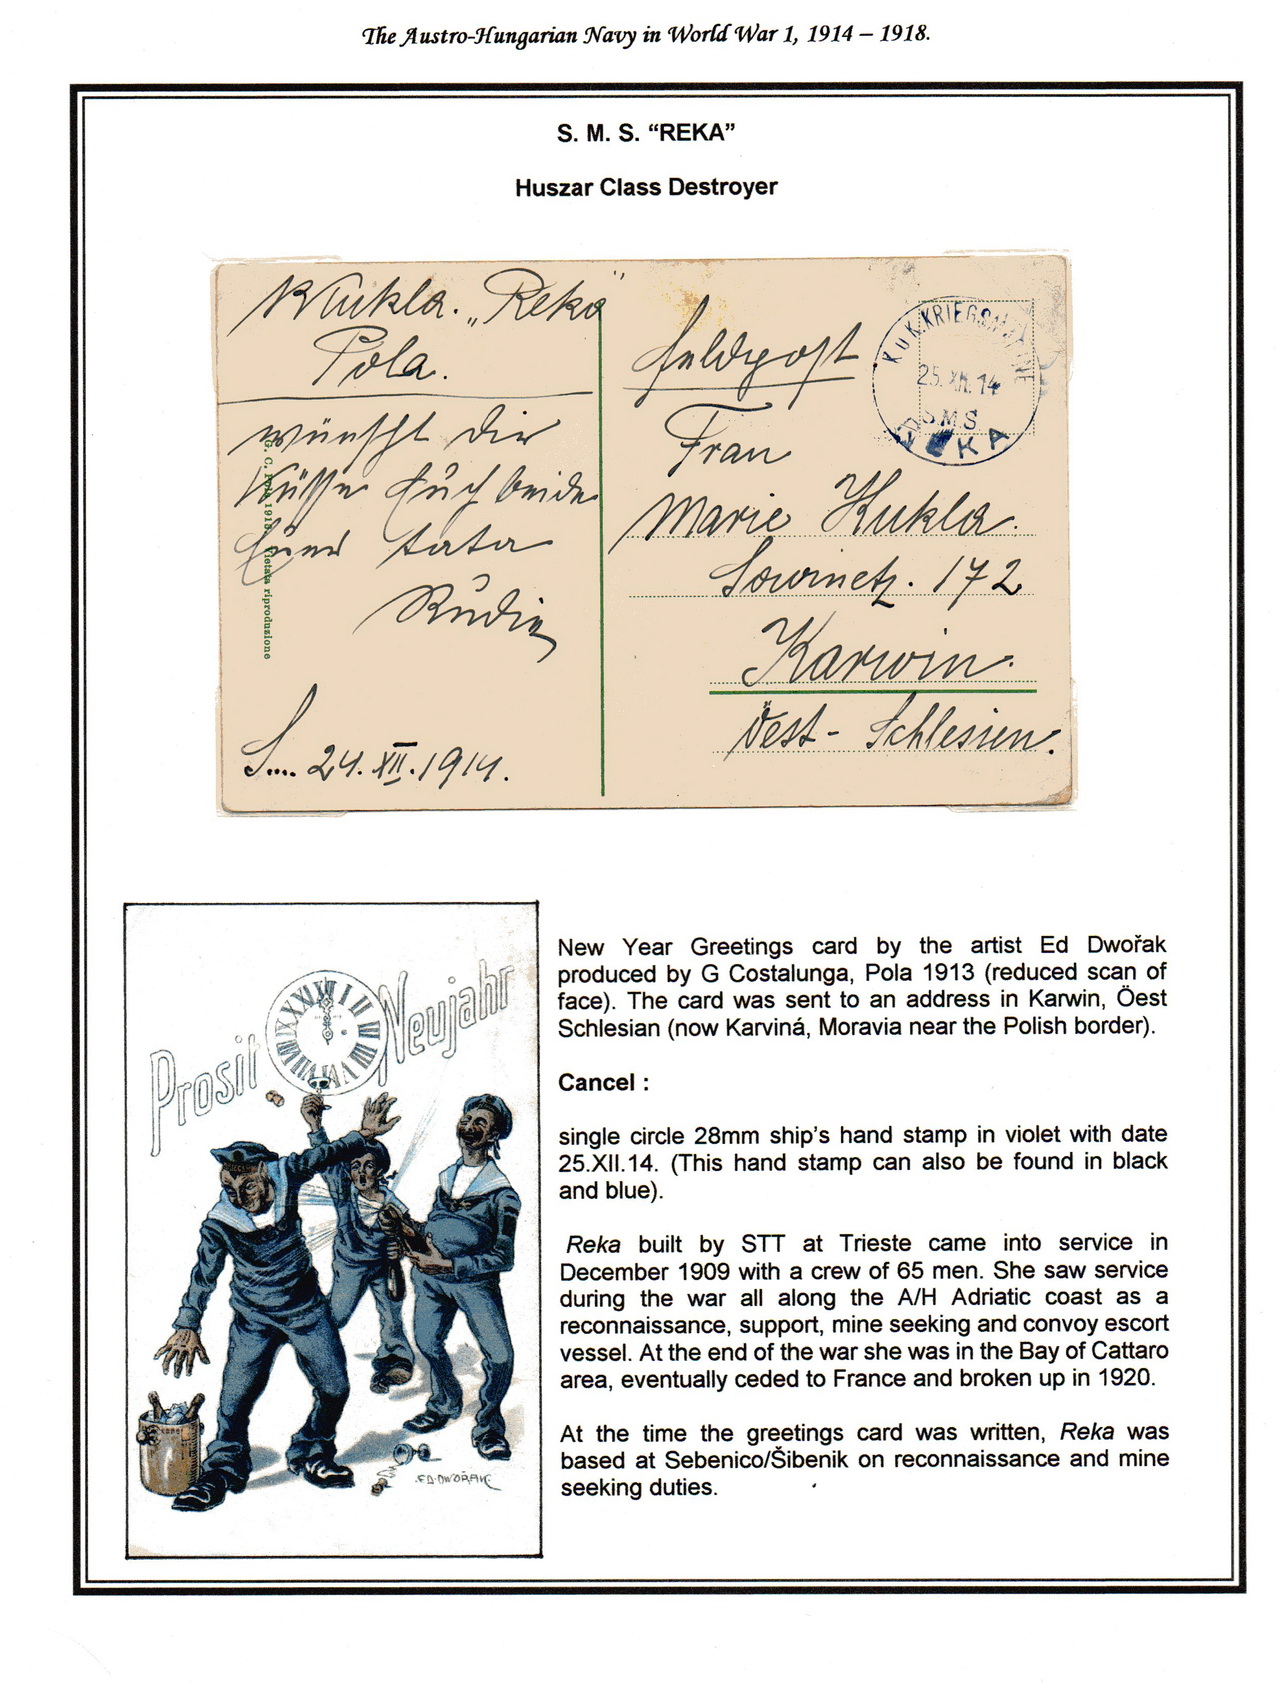 The Austro-Hungarian Navy in World War 1, 1914 – 1918.
S. M. S. “REKA”
Huszar Class Destroyer
Kukla. „Reka“
Pola.
wünscht Dir
Küsse Euch beide
Euer tata
Rudi
S.... 24. XII. 1914.
G. C. Pola 1913 Vietata riproduzione
Feldpost
Frau
Marie Kukla.
Sowinetz. 172
Karwin.
Öest- Schlesien.
K.u.K. KRIEGSMARINE
25.XII.14
SMS
REKA
Prosit Neujahr
XII I II III IV V VI VII VIII IX X XI
ED. DWOŘAK
New Year Greetings card by the artist Ed Dwořak
produced by G Costalunga, Pola 1913 (reduced scan of
face). The card was sent to an address in Karwin, Öest
Schlesian (now Karviná, Moravia near the Polish border).
Cancel :
single circle 28mm ship’s hand stamp in violet with date
25.XII.14. (This hand stamp can also be found in black
and blue).
Reka built by STT at Trieste came into service in
December 1909 with a crew of 65 men. She saw service
during the war all along the A/H Adriatic coast as a
reconnaissance, support, mine seeking and convoy escort
vessel. At the end of the war she was in the Bay of Cattaro
area, eventually ceded to France and broken up in 1920.
At the time the greetings card was written, Reka was
based at Sebenico/Šibenik on reconnaissance and mine
seeking duties.